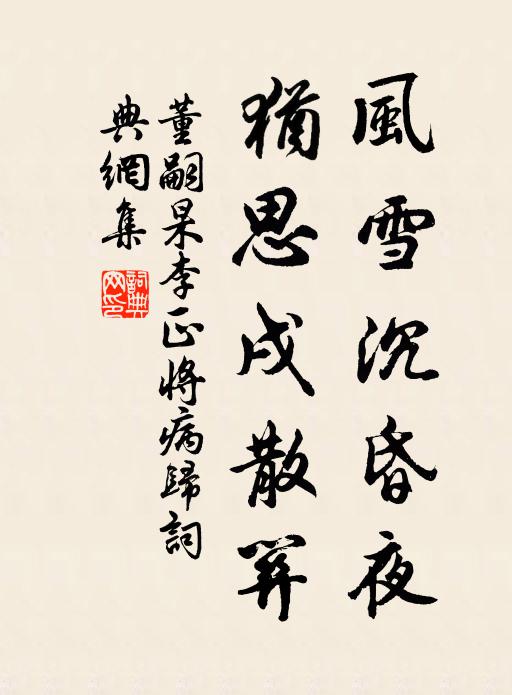 風雪沉昏夜
猶思戍散關
董嗣杲李正將病歸詞
典網集
詞典網印